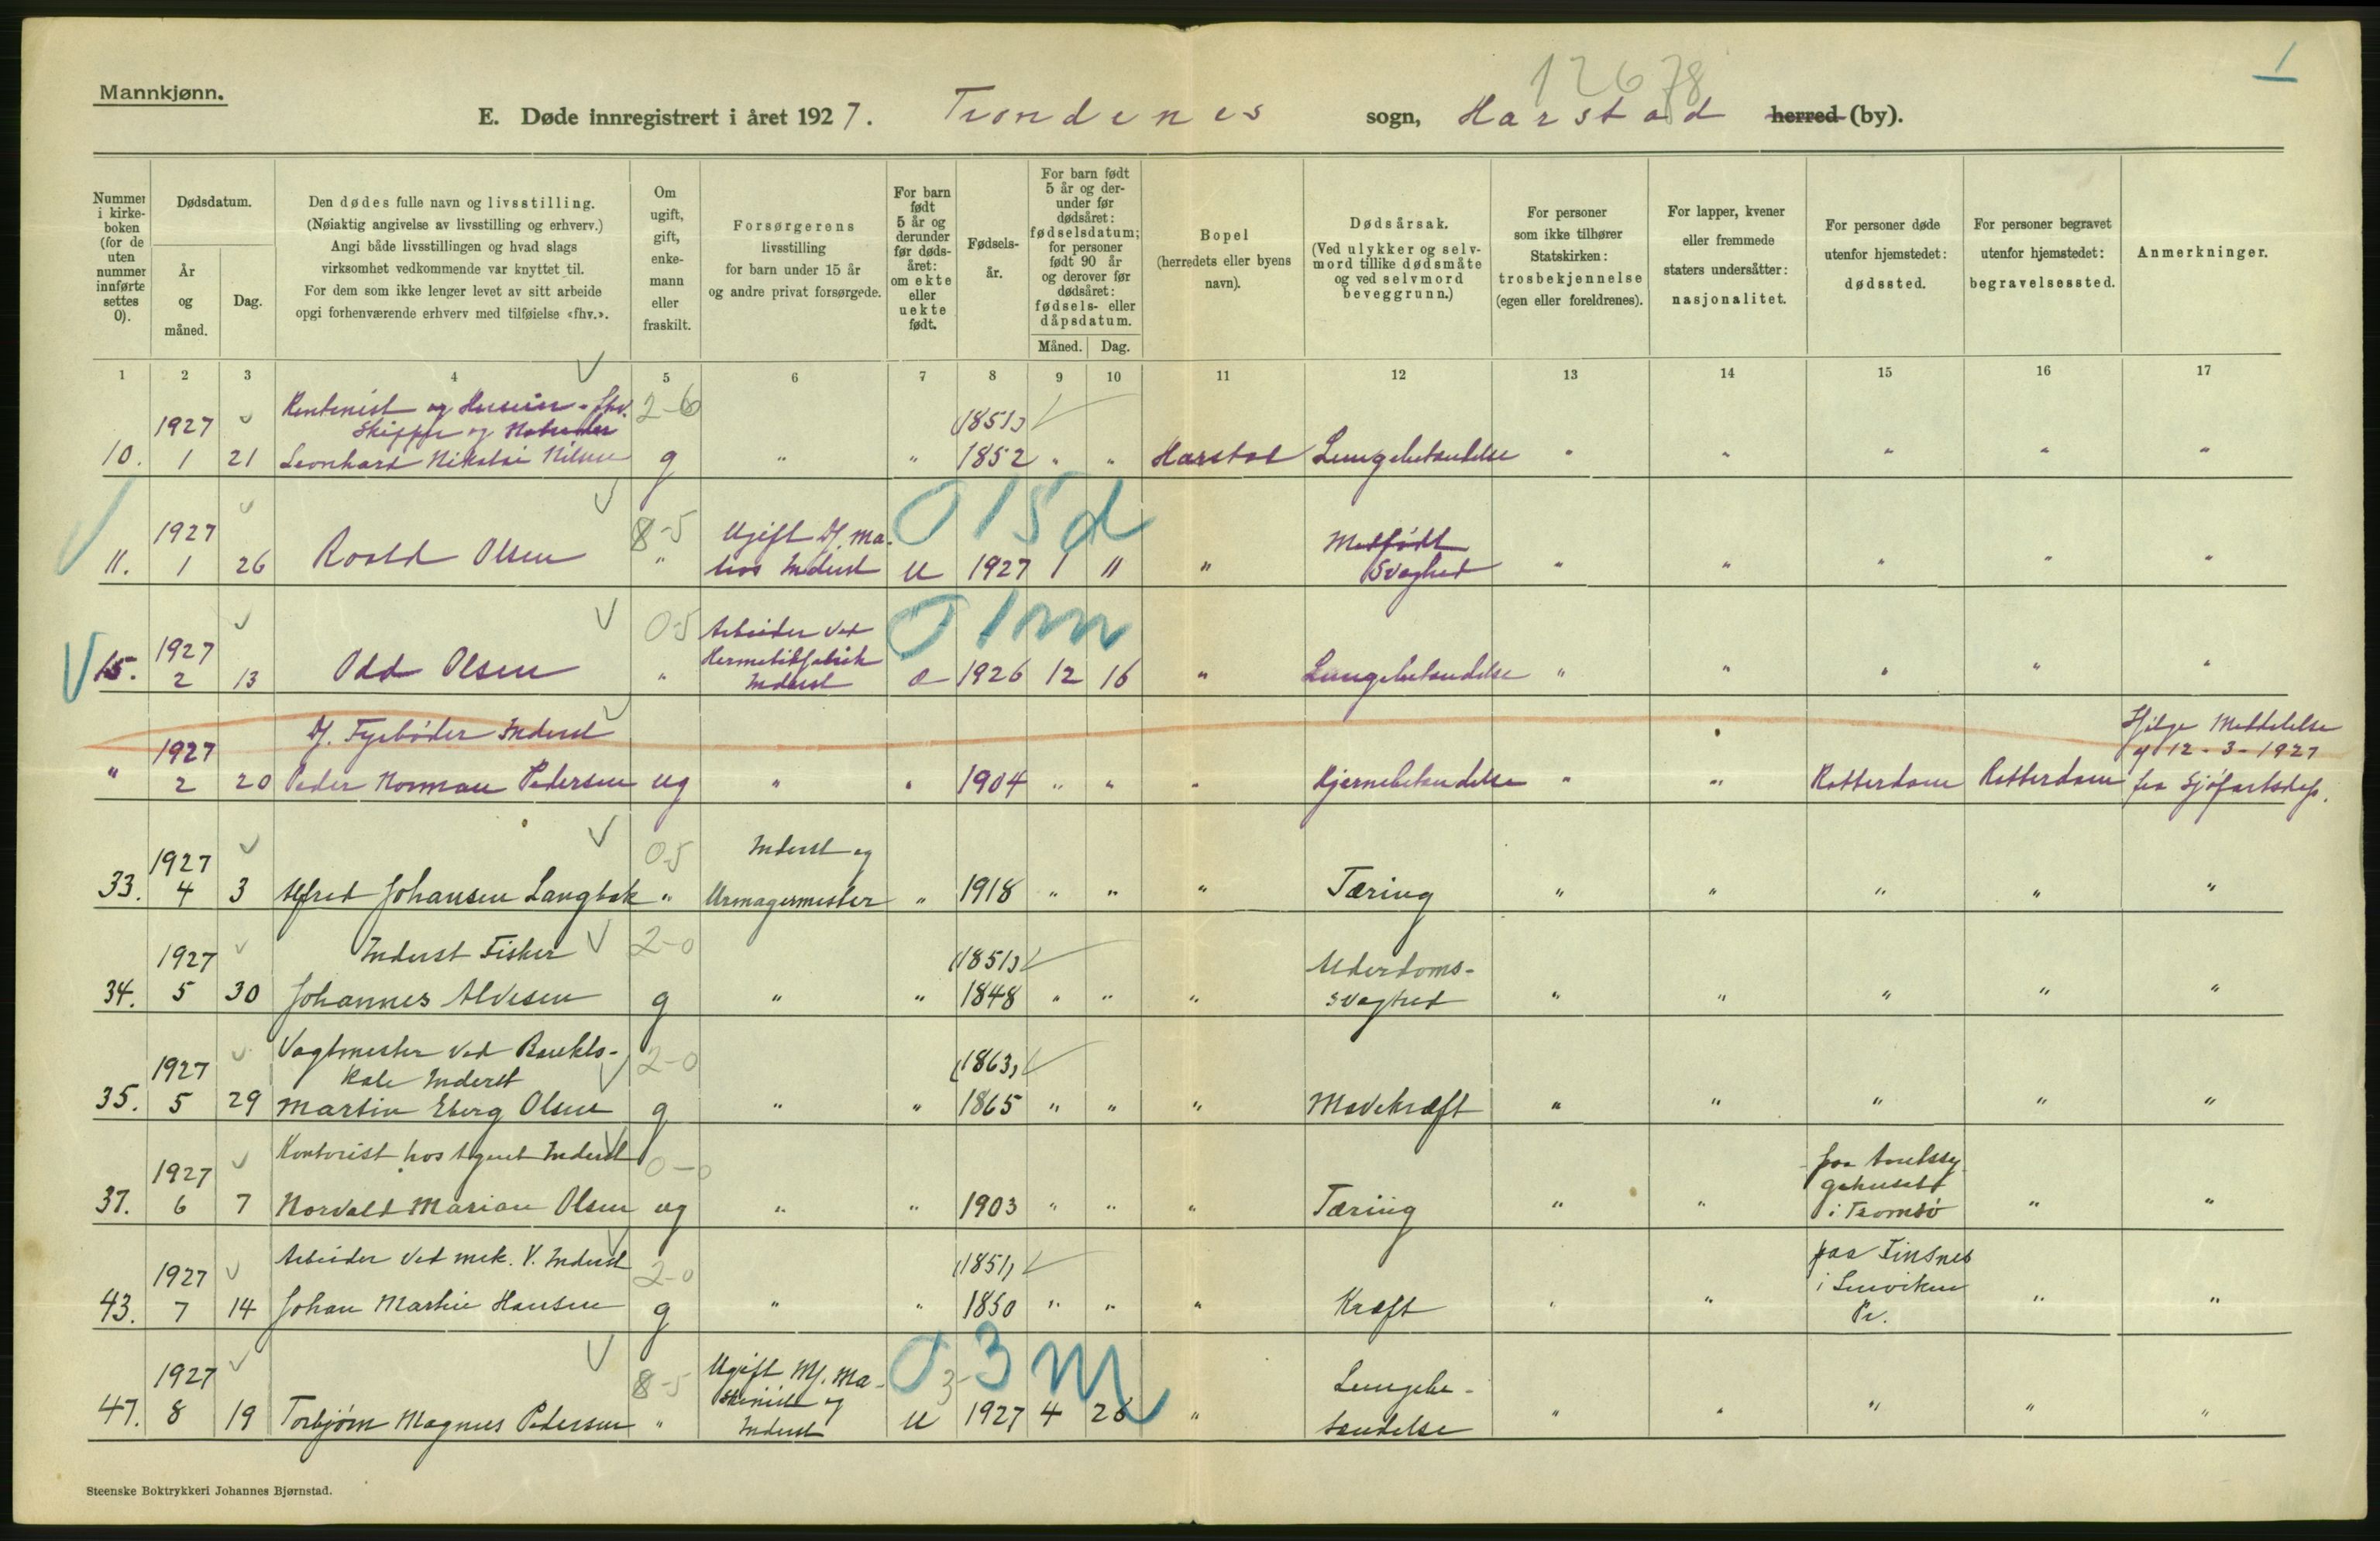 Mannkjønn.
12678
1
E. Døde innregistrert i året 1927. Trondenes sogn, Harstad herred (by).
Nummer i kirkeboken (for de uten nummer innførte settes 0).
Dødsdatum.
År og måned.
Dag.
Den dødes fulle navn og livsstilling.
(Nøiaktig angivelse av livsstilling og erhverv.)
Angi både livsstillingen og hvad slags
virksomhet vedkommende var knyttet til.
For dem som ikke lenger levet av sitt arbeide
opgi forhenværende erhverv med tilføielse «fhv.».
Om ugift, gift, enkemann eller fraskilt.
Forsørgerens
livsstilling
for barn under 15 år
og andre privat forsørgede.
For barn født 5 år og derunder før dødsåret: om ekte eller uekte født.
Fødselsår.
For barn født 5 år og derunder før dødsåret: fødselsdatum; for personer født 90 år og derover før dødsåret: fødsels- eller dåpsdatum.
Måned. Dag.
Bopel
(herredets eller byens navn).
Dødsårsak.
(Ved ulykker og selvmord tillike dødsmåte og ved selvmord beveggrunn.)
For personer som ikke tilhører Statskirken: trosbekjennelse (egen eller foreldrenes).
For lapper, kvener eller fremmede staters undersåtter: nasjonalitet.
For personer døde utenfor hjemstedet: dødssted.
For personer begravet utenfor hjemstedet: begravelsessted.
Anmerkninger.
1 2 3 4 5 6 7 8 9 10 11 12 13 14 15 16 17
Rentenist og Huseier - fhv. 2-6
1927 Skipper og (1851)
10. 1 21 Leonhard Nikolai Nilsen g " " 1852 " " Harstad Lungebetændelse " " " " "
8-5 Ugift Df. Ma. 0 15d Medfødt
1927
11. 1 26 Roald Olsen " hos Inderst U 1927 1 11 " Svaghed " " " " "
0-5 Arbeider ved 0 1m
1927 Hermetikfabrik
15. 2 13 Odd Olsen " Inderst e 1926 12 16 " Lungebetændelse " " " " "
Df. Fyrbøder Inderst Ifølge Meddelelse
1927 af 12-3-1927
" 2 20 Peder Norman Pedersen ug " " 1904 " " " Hjernebetændelse " " Rotterdam Rotterdam fra Sjøfartsdep.
0-5 Inderst og
1927
33. 4 3 Alfred Johansen Langbak " Urmagermester " 1918 " " " Tæring " " " " "
Inderst Fisker 2-0 (1851) Alderdoms-
1927
34. 5 30 Johannes Alvesen g " " 1848 " " " svaghed " " " " "
Vagtmester ved Baukts- 2-0 (1863)
1927 kole Inderst
35. 5 29 Martin Eberg Olsen g " " 1865 " " " Mavekræft " " " " "
Kontorist hos Agent Inderst 0-0 paa Amtssy
1927 gehuset
37. 6 7 Norvald Marian Olsen ug " " 1903 " " " Tæring " " i Tromsø " "
Arbeider ved mek. V. Inderst 2-0 (1851) paa Finsnes
1927 i Lenviken
43. 7 14 Johan Martin Hansen g " " 1850 " " " Kræft " " Pr. " "
8-5 Ugift Mf. Ma- 0 3 m Lungebe-
1927 skinist og
47. 8 19 Torbjørn Magnus Pedersen " Inderst U 1927 4 26 " tændelse " " " " "
Steenske Boktrykkeri Johannes Bjørnstad.